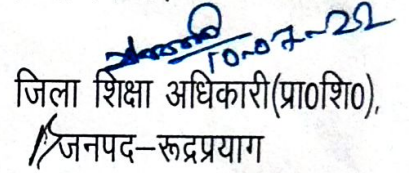 10-07-22
जिला शिक्षा अधिकारी(प्रा0शि0),
जनपद–रूद्रप्रयाग